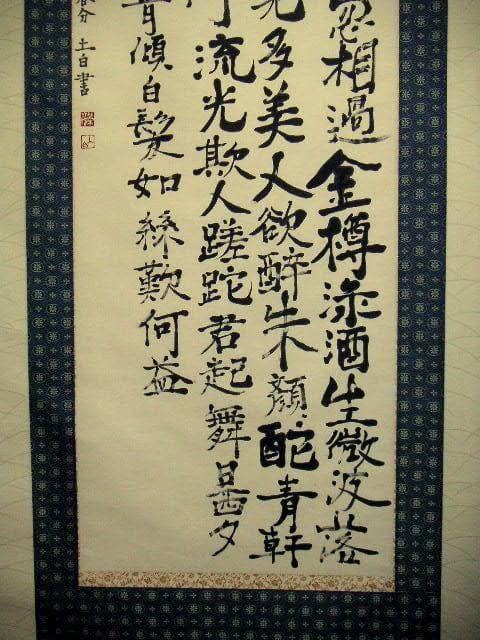 忽相過金樽淥酒生微波落
多美人欲醉朱顏酡青軒
流光欺人蹉跎君起舞日西夕
肯傾白髮如絲歎何益
分 土白書